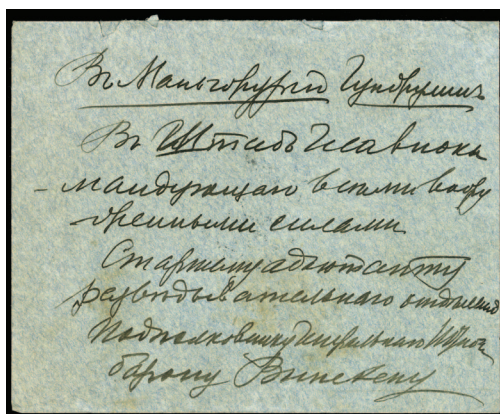 Въ Маньчжурiю Гунжулинъ
Въ Штабъ Главноко
-мандующаго всѣми воору
-женными силами
Старшему адъютанту
развѣдывательнаго отдѣленiя
Подполковнику Генеральнаго Штаба
барону Винекену